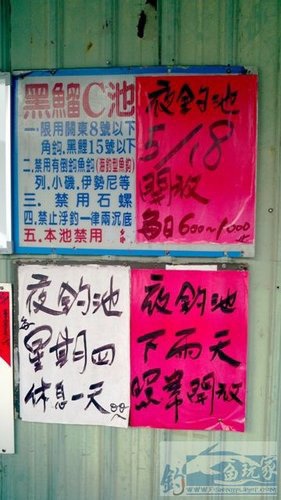 黑鰡C池
一.限用關東8號以下
角鈎.黑鯉15號以下
二.禁用有倒鈎魚鈎(海釣型魚鈎)
列.小磯.伊勢尼等
三.禁用石螺
四.禁止浮釣一律兩沉底
五.本池禁用
夜釣池
5/18
開放
每日600~1000
止
夜釣池
每星期四
休息一天
夜釣池
下雨天
照常開放
釣魚玩家
www.FISHINGPLAYER.COM